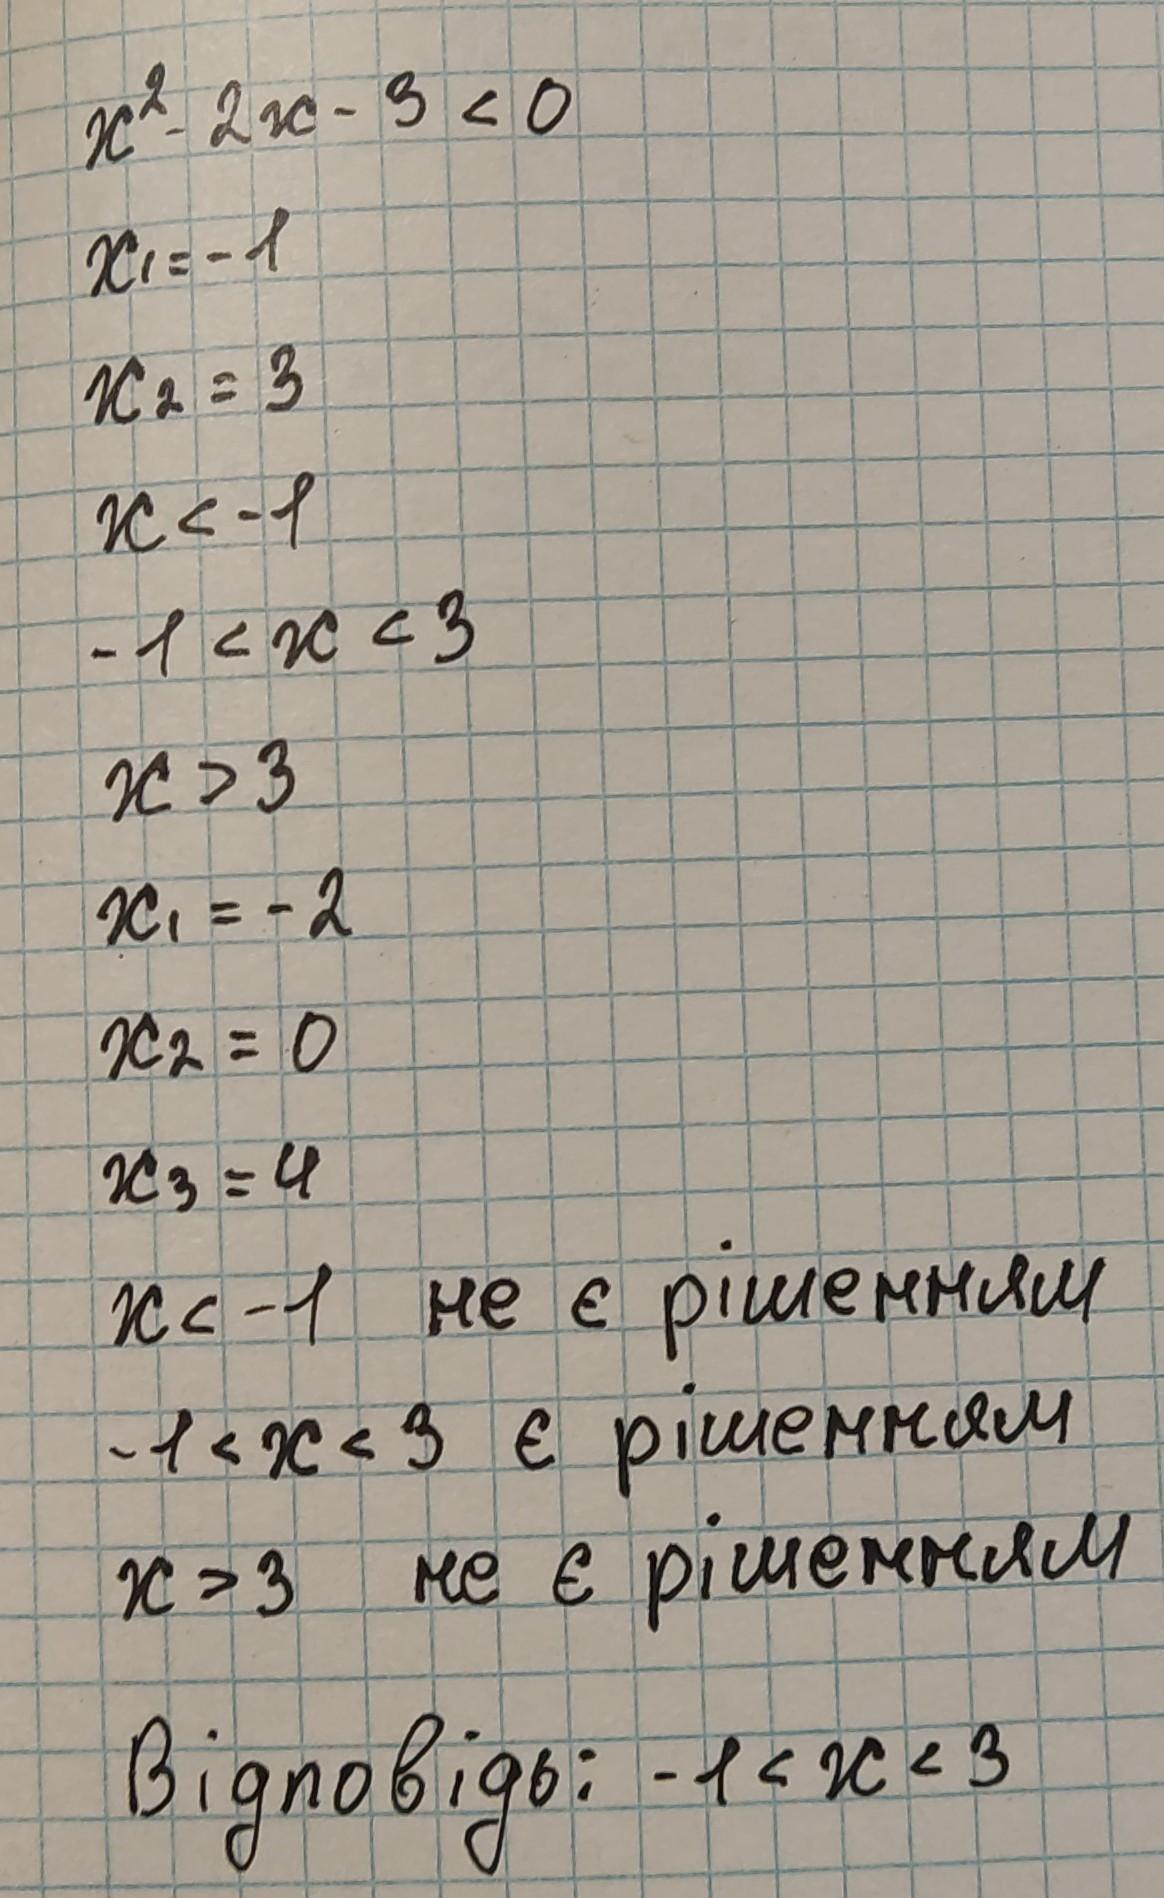 x² - 2x - 3 < 0
x₁ = -1
x₂ = 3
x < -1
-1 < x < 3
x > 3
x₁ = -2
x₂ = 0
x₃ = 4
x < -1 не є рішенням
-1 < x < 3 є рішенням
x > 3 не є рішенням
Відповідь: -1 < x < 3